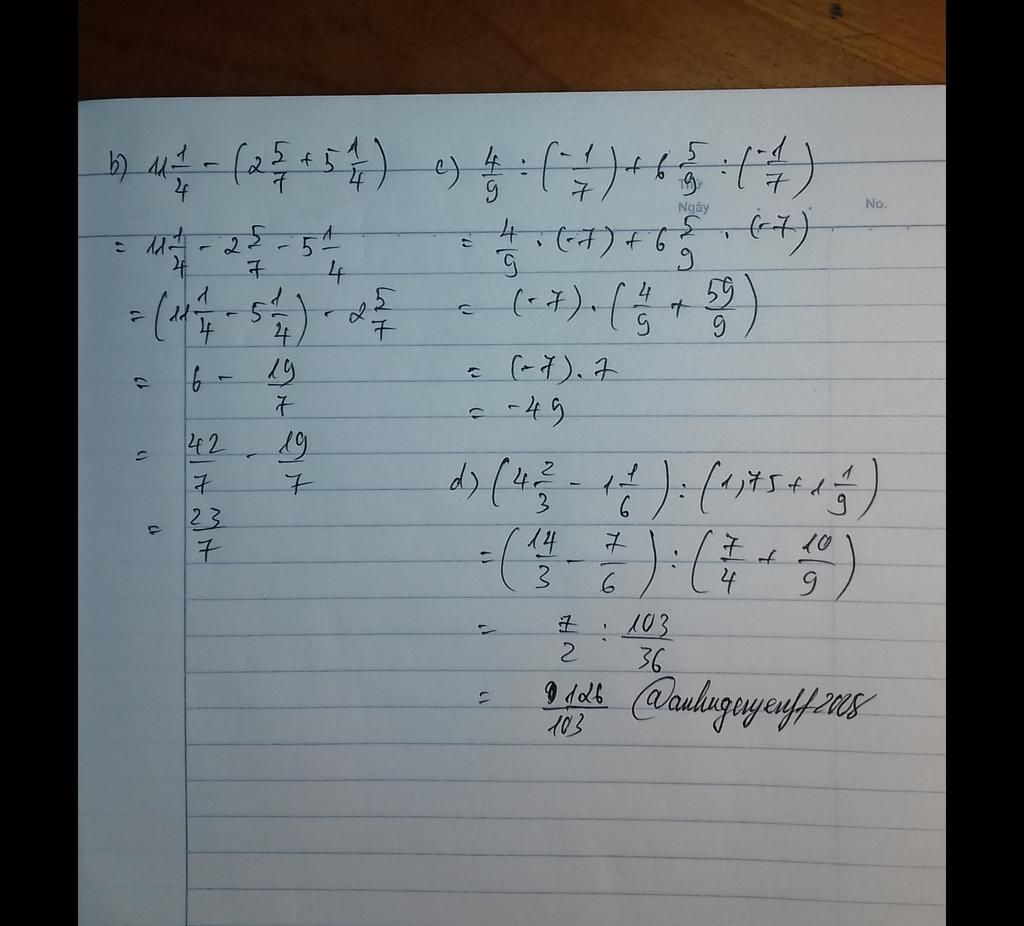 b) 11 1/4 - (2 5/7 + 5 1/4)
= 11 1/4 - 2 5/7 - 5 1/4
= (11 1/4 - 5 1/4) - 2 5/7
= 6 - 19/7
= 42/7 - 19/7
= 23/7
c) 4/9 : (-1/7) + 6 5/9 : (-1/7)
= 4/9 . (-7) + 6 5/9 . (-7)
= (-7) . (4/9 + 59/9)
= (-7) . 7
= -49
d) (4 2/3 - 1 1/6) : (1,75 + 1 1/9)
= (14/3 - 7/6) : (7/4 + 10/9)
= 7/2 : 103/36
= 126/103
Ngày
No.